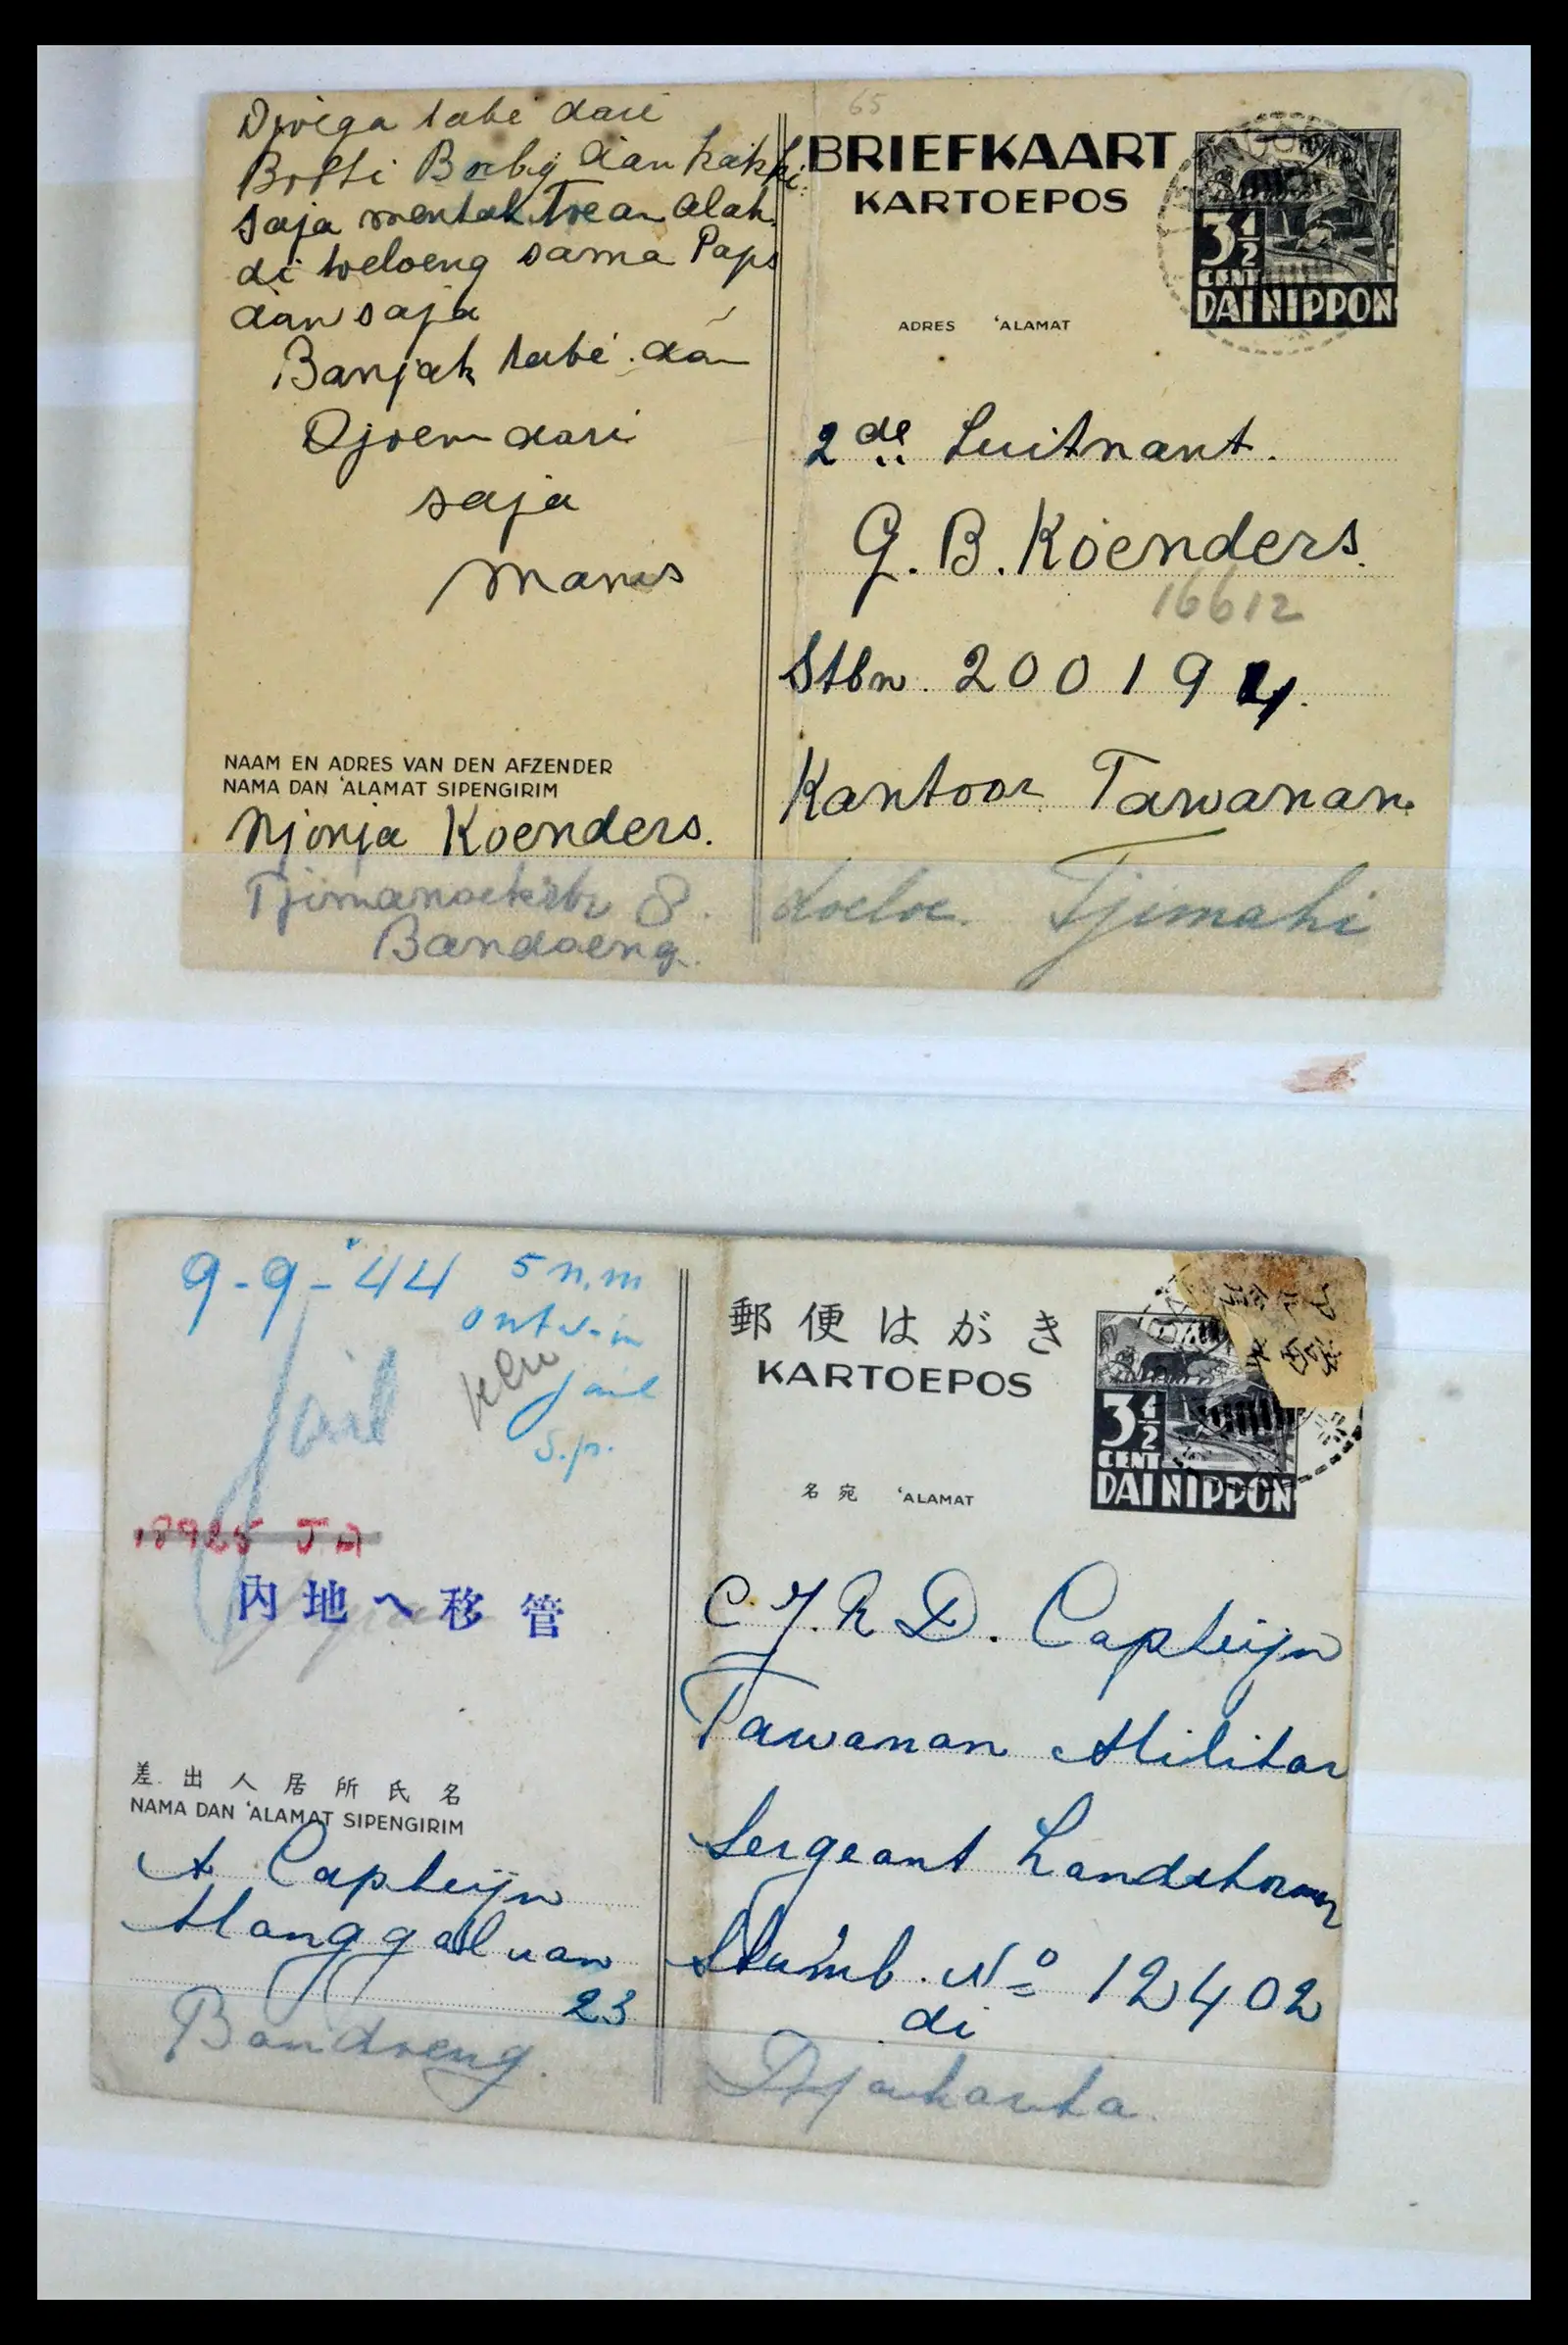 Djoega tabe dari
Botti Bobby dan kakki
saja mentak Toean Alah
di toeloeng sama Paps
dan saja
Banjak tabé dan
Djoem dari
saja
Manis
NAAM EN ADRES VAN DEN AFZENDER
NAMA DAN 'ALAMAT SIPENGIRIM
Njonja Koenders.
8.
Bandoeng.
65
BRIEFKAART
KARTOEPOS
3½
CENT
DAI NIPPON
ADRES 'ALAMAT
2de Luitnant.
G. B. Koenders.
16612
Stbn. 200194.
Kantoor Tawanan.
doeloe. Tjimahi
9-9-'44 5 n.m
ontv. in
jail
s.p.
Jail
18925 JA
内地へ移管
差出人居所氏名
NAMA DAN 'ALAMAT SIPENGIRIM
A Capteijn
Manggaluan
23
Bandoeng.
郵便はがき
KARTOEPOS
3½
CENT
DAI NIPPON
名宛 'ALAMAT
C.J.R.D. Capteijn
Tawanan Militar
Sergeant Landstorm
Stamb. No 12402
di
Djakarta.